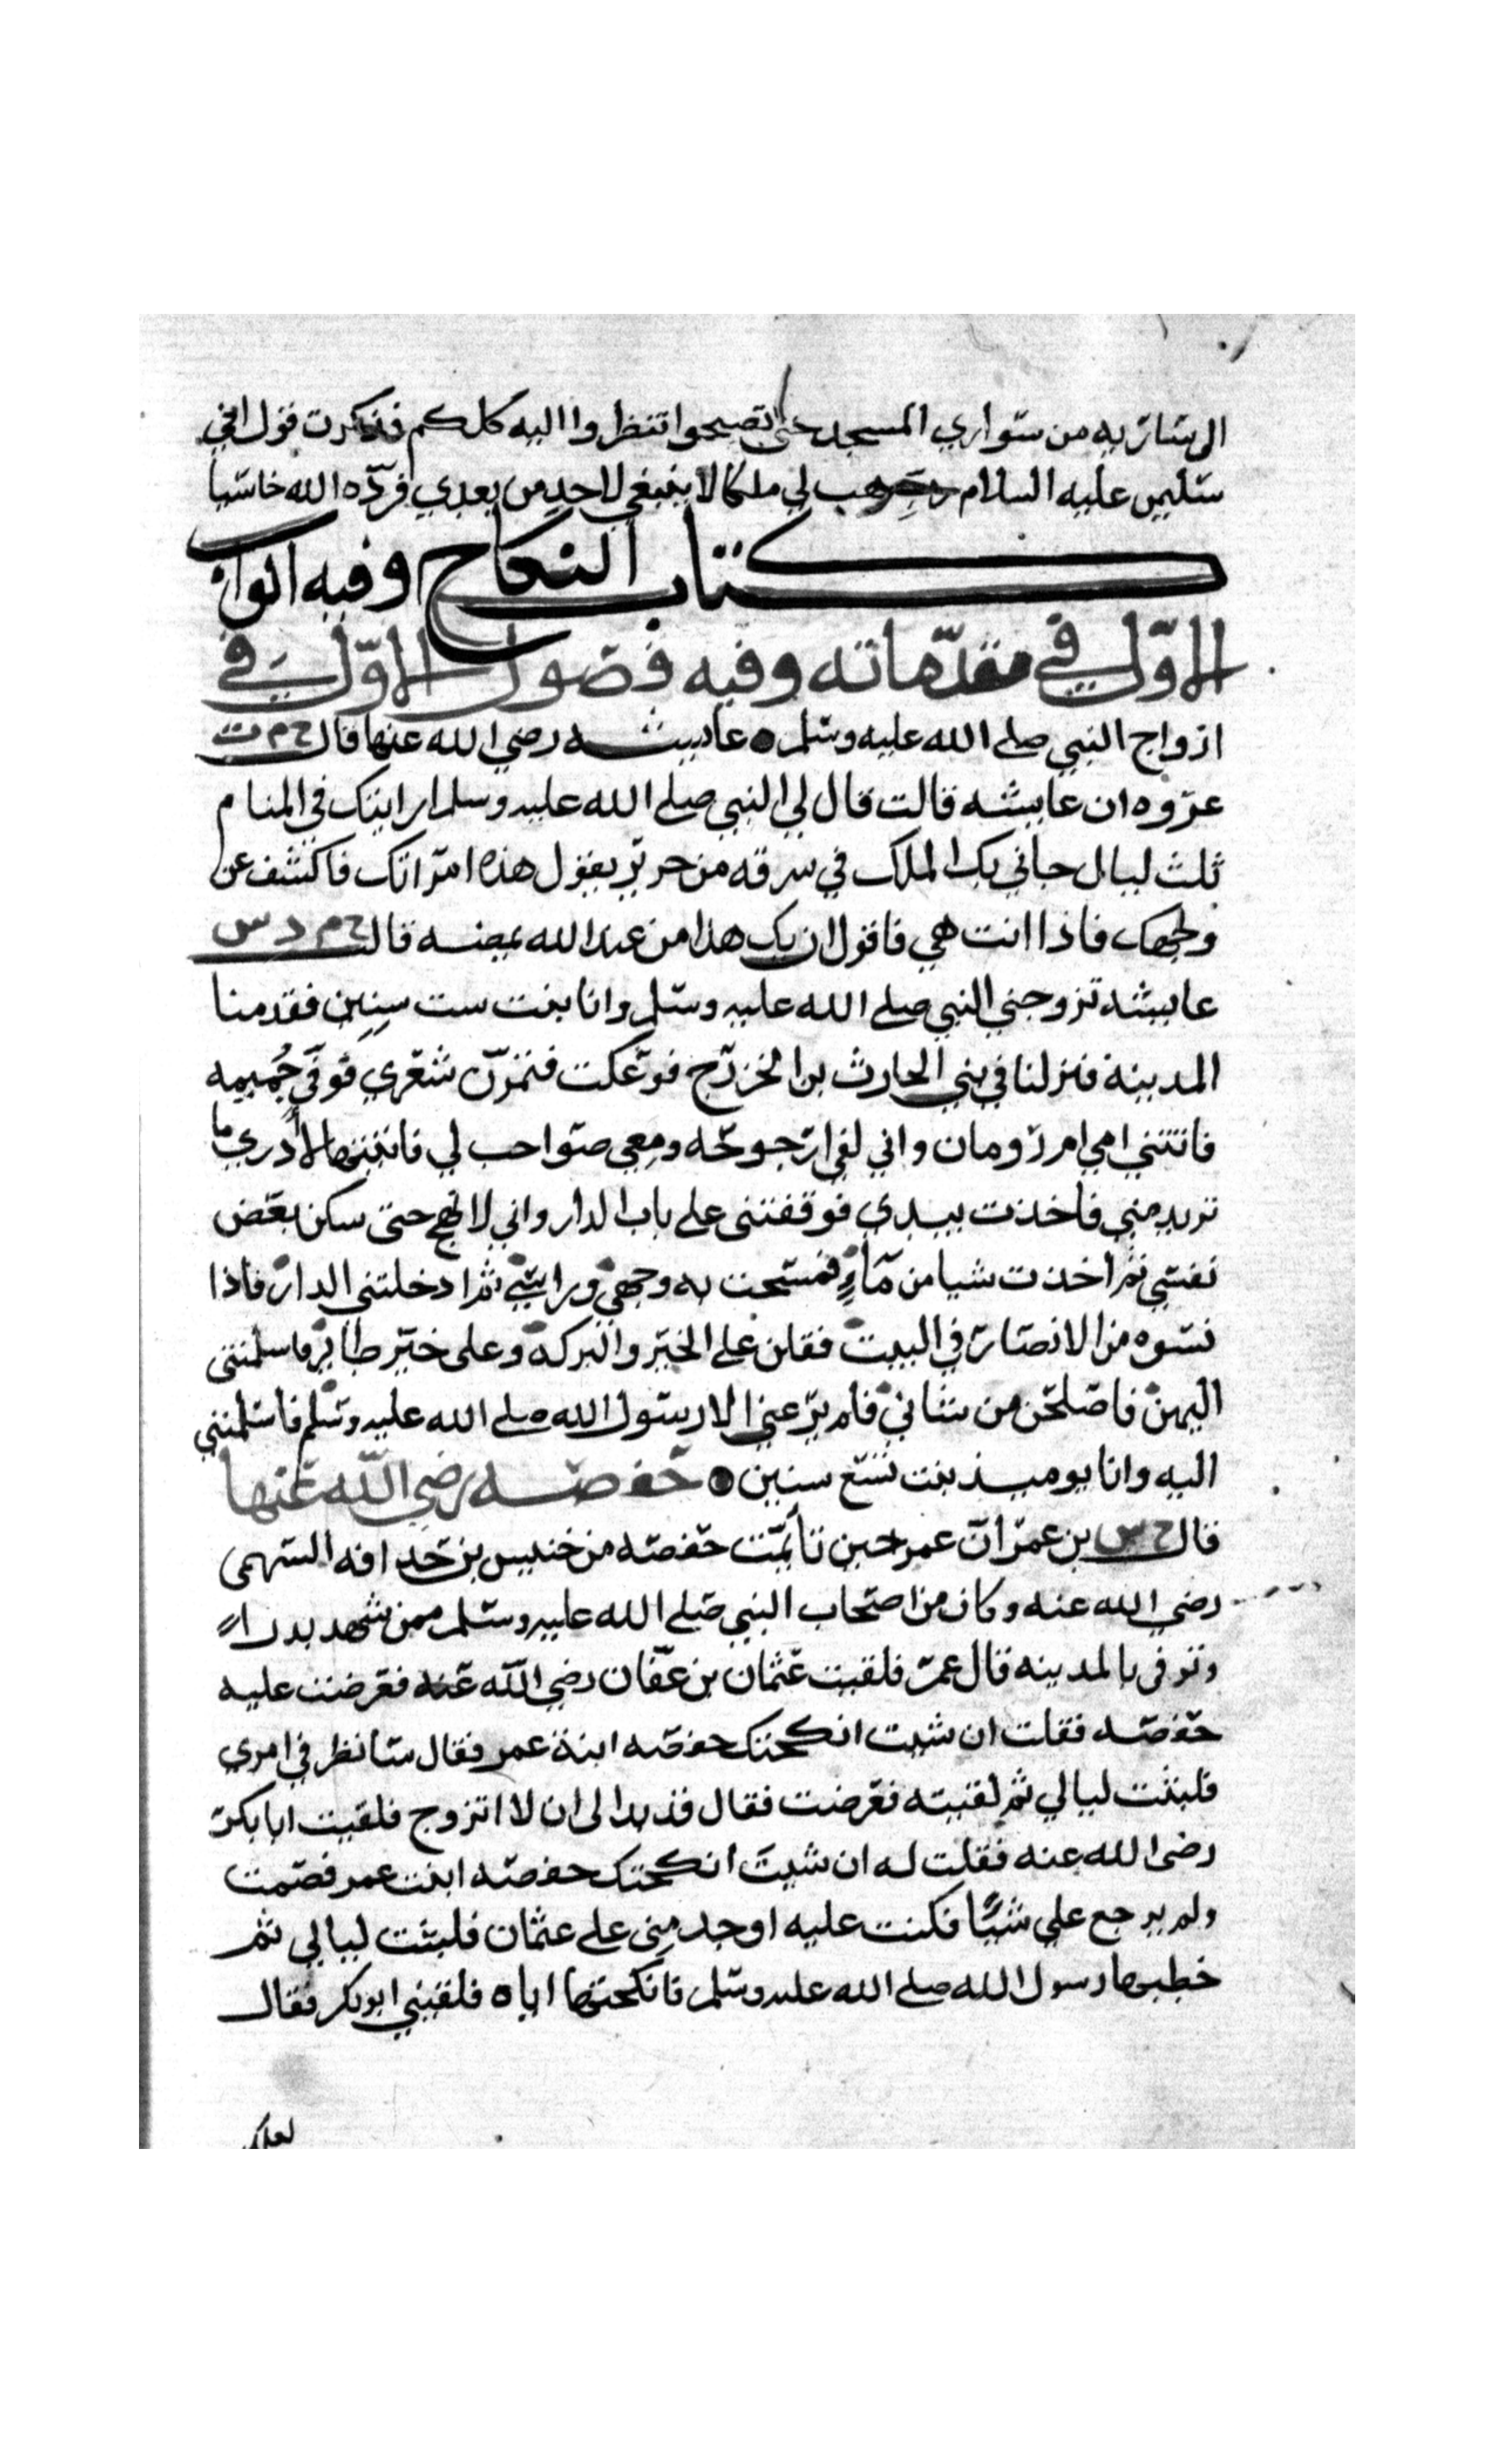 الى سارية من سواري المسجد حتى تصبحوا تنظروا اليه كلكم فذكرت قول اخي
سليمن عليه السلام رب هب لي ملكا لا ينبغي لاحد من بعدي فردّه الله خاسيا
كتاب النكاح وفيه ابواب
الاوّل في مقدّماته وفيه فصول الاوّل في
ازواج النبي صلى الله عليه وسلم عايشه رضي الله عنها قال خ م ت
عروه ان عايشه قالت قال لي النبي صلى الله عليه وسلم اريتك في المنام
ثلث ليال جاني بك الملك في سرقه من حرير يقول هذه امراتك فاكشف عن
وجهك فاذا انت هي فاقول ان يك هذا من عند الله يمضه قال خ م د س
عايشه تزوجني النبي صلى الله عليه وسلم وانا بنت ست سنين فقدمنا
المدينة فنزلنا في بني الحارث بن الخزرج فوعكت فتمزّق شعري فوفي جُميمه
فاتتني امي ام رومان واني لفي ارجوحه ومعي صواحب لي فاتيتها لا أدري ما
تريد مني فاخذت بيدي فوقفتني على باب الدار واني لانهج حتى سكن بعض
نفسي ثم أخذت شيا من مّاءٍ فمسحت به وجهي وراسي ثم ادخلتني الدار فاذا
نسوه من الانصار في البيت فقلن على الخير والبركة وعلى خير طاير فاسلمتني
اليهن فاصلحن من شاني فلم يرعني الا رسول الله صلى الله عليه وسلم فاسلمنني
اليه وانا يوميذ بنت تسع سنين حفصه رضي الله عنها
قال خ س بن عمر ان عمر حين تأيمّت حفصه من خنيس بن حذافه السهمى
رضي الله عنه وكان من اصحاب النبي صلى الله عليه وسلم ممن شهد بدراً
وتوفى بالمدينه قال عمر فلقيت عثمان بن عفّان رضي الله عنه فعرضت عليه
حفصه فقلت ان شيت انكحتك حفصه ابنة عمر فقال سانظر في امري
فلبثت ليالي ثم لقيته فعرضت فقال قد بدا لى ان لا اتزوج فلقيت ابا بكر
رضى الله عنه فقلت له ان شيتَ انكحتك حفصه ابنت عمر فصمت
ولم يرجع علي شيًا فكنت عليه اوجد مِنى على عثمان فلبثت ليالي ثم
خطبها رسول الله صلى الله عليه وسلم فانكحتها اياه فلقيني ابو بكر فقال
لعلك